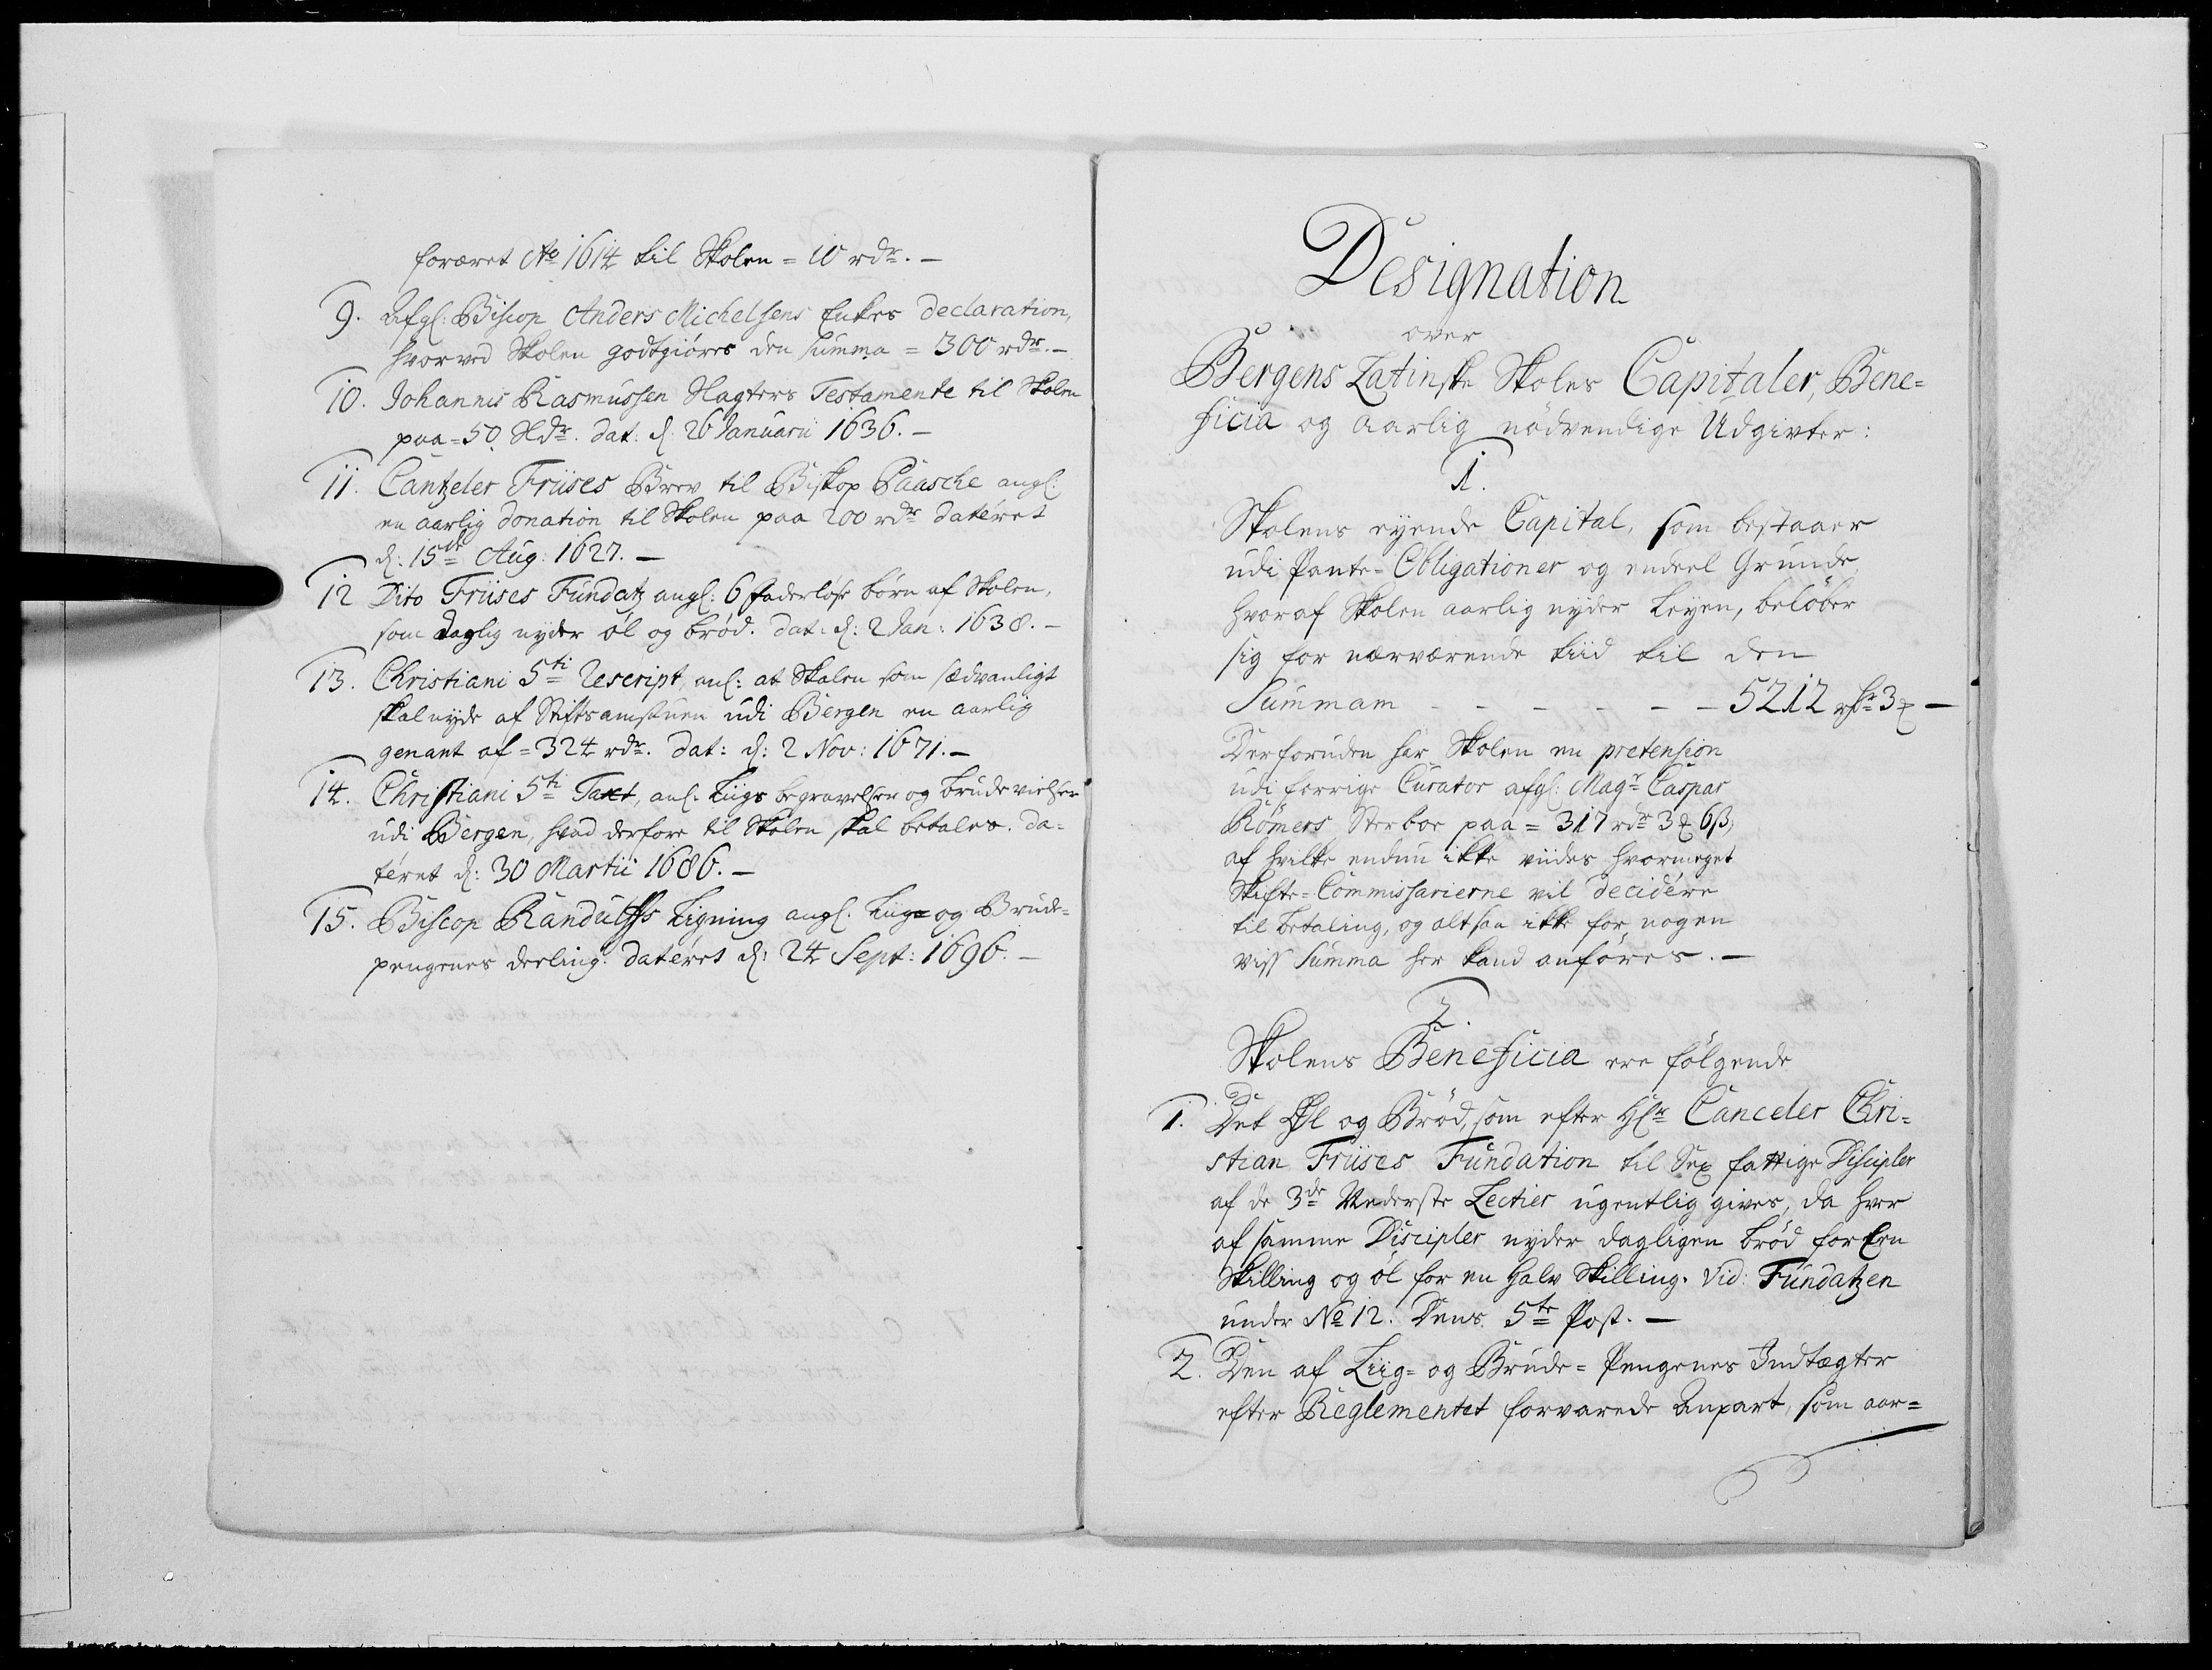 foræret Ao 1614 til Skolen = 10 rdr. –
9. Afgl: Biscop Anders Michelsens Enkes declaration,
hvorved Skolen godtgiöres den summa = 300 rdr. –
10. Johannis Rasmussen Slagters Testamente til Skolen
paa = 50 Sldr. dat: d: 26 Januarii 1636. –
11. Cantzeler Friises Brev til Biskop Paasche angl:
en aarlig donation til Skolen paa 200 rdr dateret
d: 15de Aug: 1627. –
12 Dito Friises Fundatz angl: 6 faderlöse börn af Skolen,
som daglig nyder öl og bröd. dat: d: 2 Jan: 1638. –
13. Christiani 5ti Rescript, anl: at Skolen som sædvanligt
skal nyde af Stiftsamstuen udi Bergen en aarlig
genant af = 324 rdr. dat: d: 2 Nov: 1671. –
14. Christiani 5ti Taxt, anl: Liigs begravelser og brudevielser
udi Bergen, hvad derfore til Skolen skal betales. da=
téret d: 30 Martii 1686. –
15. Biscop Randulffs Ligning angl: Liig= og Brude=
pengenes deeling. dateret d: 24 Sept: 1696. –
Designation
over
Bergens Latinske Skoles Capitaler, Bene=
ficia og aarlig nödvendige Udgivter:
1.
Skolens eyende Capital, som bestaaer
udi Pante= Obligationer og endeel Grunde,
hvoraf Skolen aarlig nyder Leyen, belöber
sig for nærværende tiid til den
Summam – – – – – – – 5212 rdr 3 –
Desforuden har Skolen en pretension
udi forrige Curator afgl: Magr Caspar
Römers Sterboe paa = 317 rdr 3 6 ß,
af hvilke endnu ikke viides hvormeget
Skifte= Commissarierne vil decidére
til betaling, og altsaa ikke for nogen
viss Summa her kand anföres. –
2.
Skolens Beneficia ere fölgende
1. Det Öl og Bröd, som efter Hr Canceler Chri=
stian Friises Fundation til Sex fattige Discipler
af de 3de Nederste Lectier ugentlig gives, da hver
af samme Discipler nyder dagligen bröd for Een
Skilling og öl for en halv Skilling. Vid: Fundatzen
under No 12. Dens 5te Post. –
2. Den af Liig= og Brude= Pengenes Indtægter
efter Reglementet forvarede Anpart, som aar=